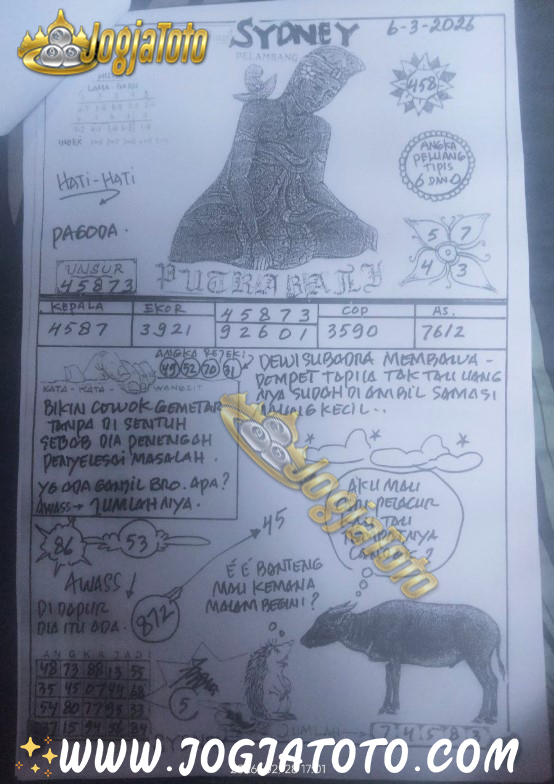 JogjaToto
SYDNEY
6-3-2026
PELAMBANG
LAMA - BARU
INDEX
458
HATI-HATI
ANGKA
PELUANG
TIPIS
6 DAN 0
PAGODA.
5 7
4 3
UNSUR
45873
PUTRA BALI
KEPALA EKOR 45873 COP AS.
4587 3921 92601 3590 7612
ANGKA REJEKI:
49 52 70 31
KATA - KATA - WANGSIT
DEWI SUBADRA MEMBAWA -
DOMPET TAPI LA TAK TAU UANG
NYA SUDAH DI AMBIL SAMASI
KECIL..
BIKIN COWOK GEMETAR
TANPA DI SENTUH
SEBAB DIA PENENGAH
PENYELESAI MASALAH.
YG ADA GANJIL BRO. APA?
AWASS → JUMLAHNYA.
JogjaToto
AKU MAU
PELACUR
TAU
86
53
45
AWASS!
DI DAPUR
DIA ITU ADA.
872
É É BANTENG
MAU KEMANA
MALAM BEGINI?
ANGKA JADI
48 73 88 13 55
35 45 07 44 68
54 80 77 95 33
5
WWW.JOGJATOTO.COM